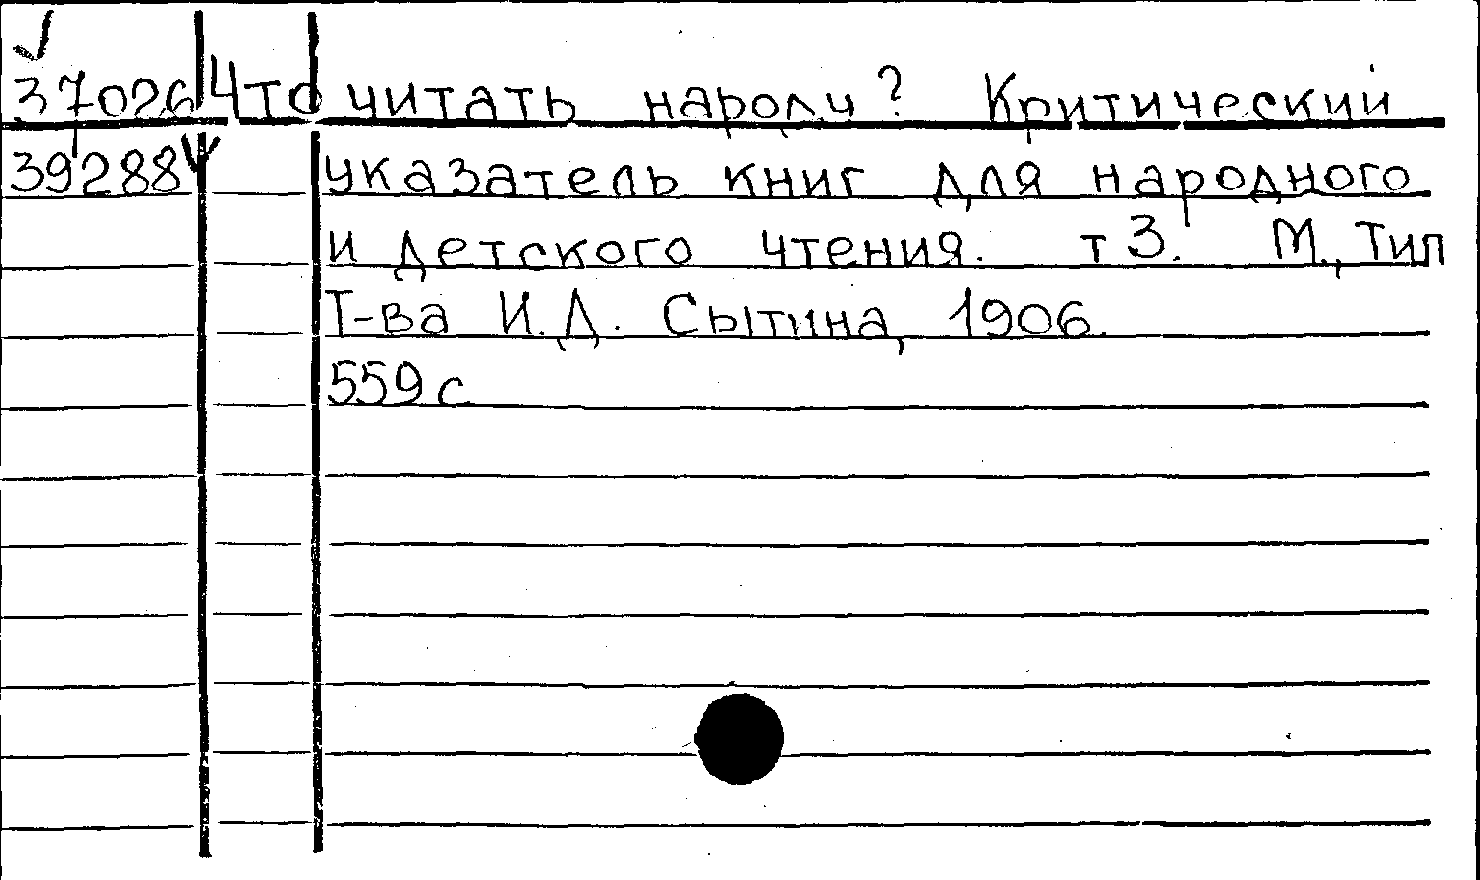 37026 Что читать народу? Критический
39288 указатель книг для народного
и детского чтения. т 3. М., Тип
Т-ва И.Д. Сытина, 1906.
559 с